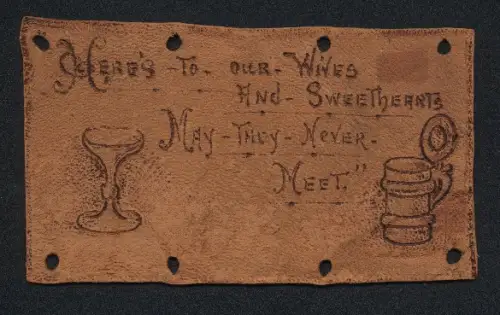 "Here's - To - our - Wives
And - Sweethearts
May - They - Never -
Meet."